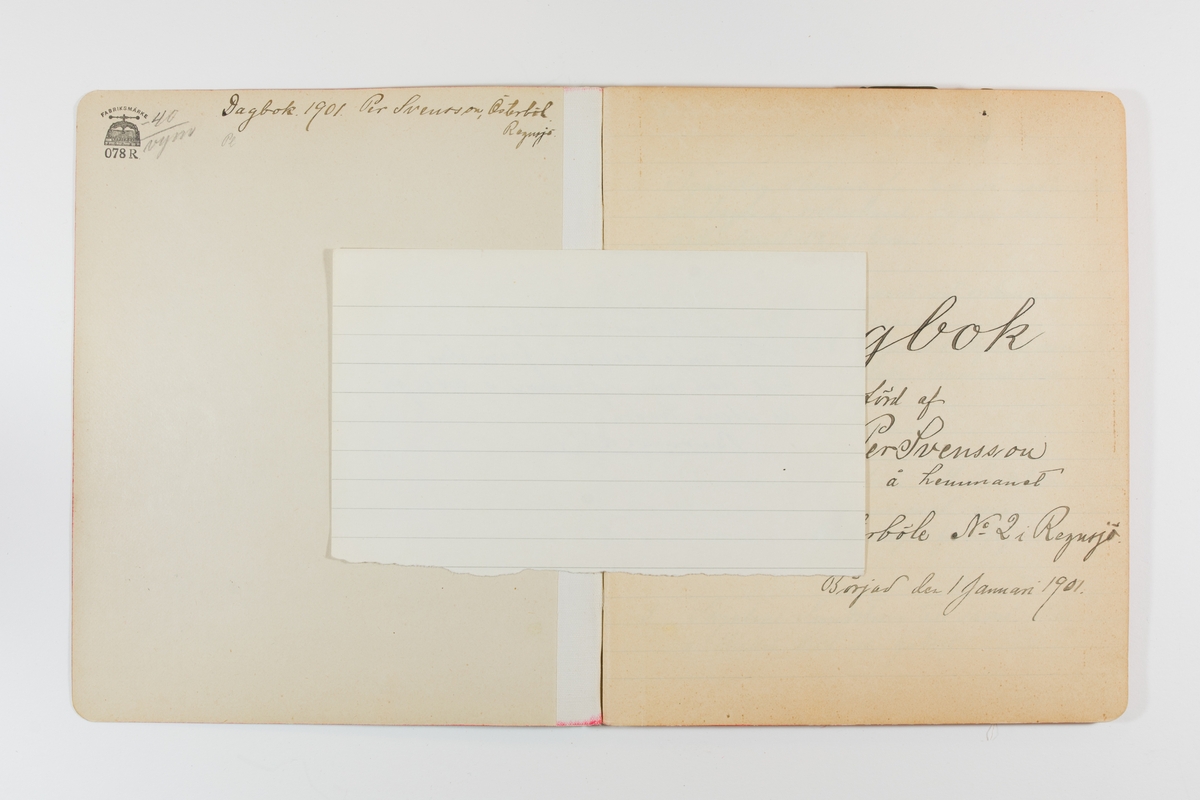 FABRIKSMÄRKE
078 R
-40
Dagbok 1901. Per Svensson, Österböl
Rezusjö.
Pe
gbok
förd af
Per Svensson
å hemmanet
rböle No 2 i Rezusjö.
Börjad den 1 Januari 1901.